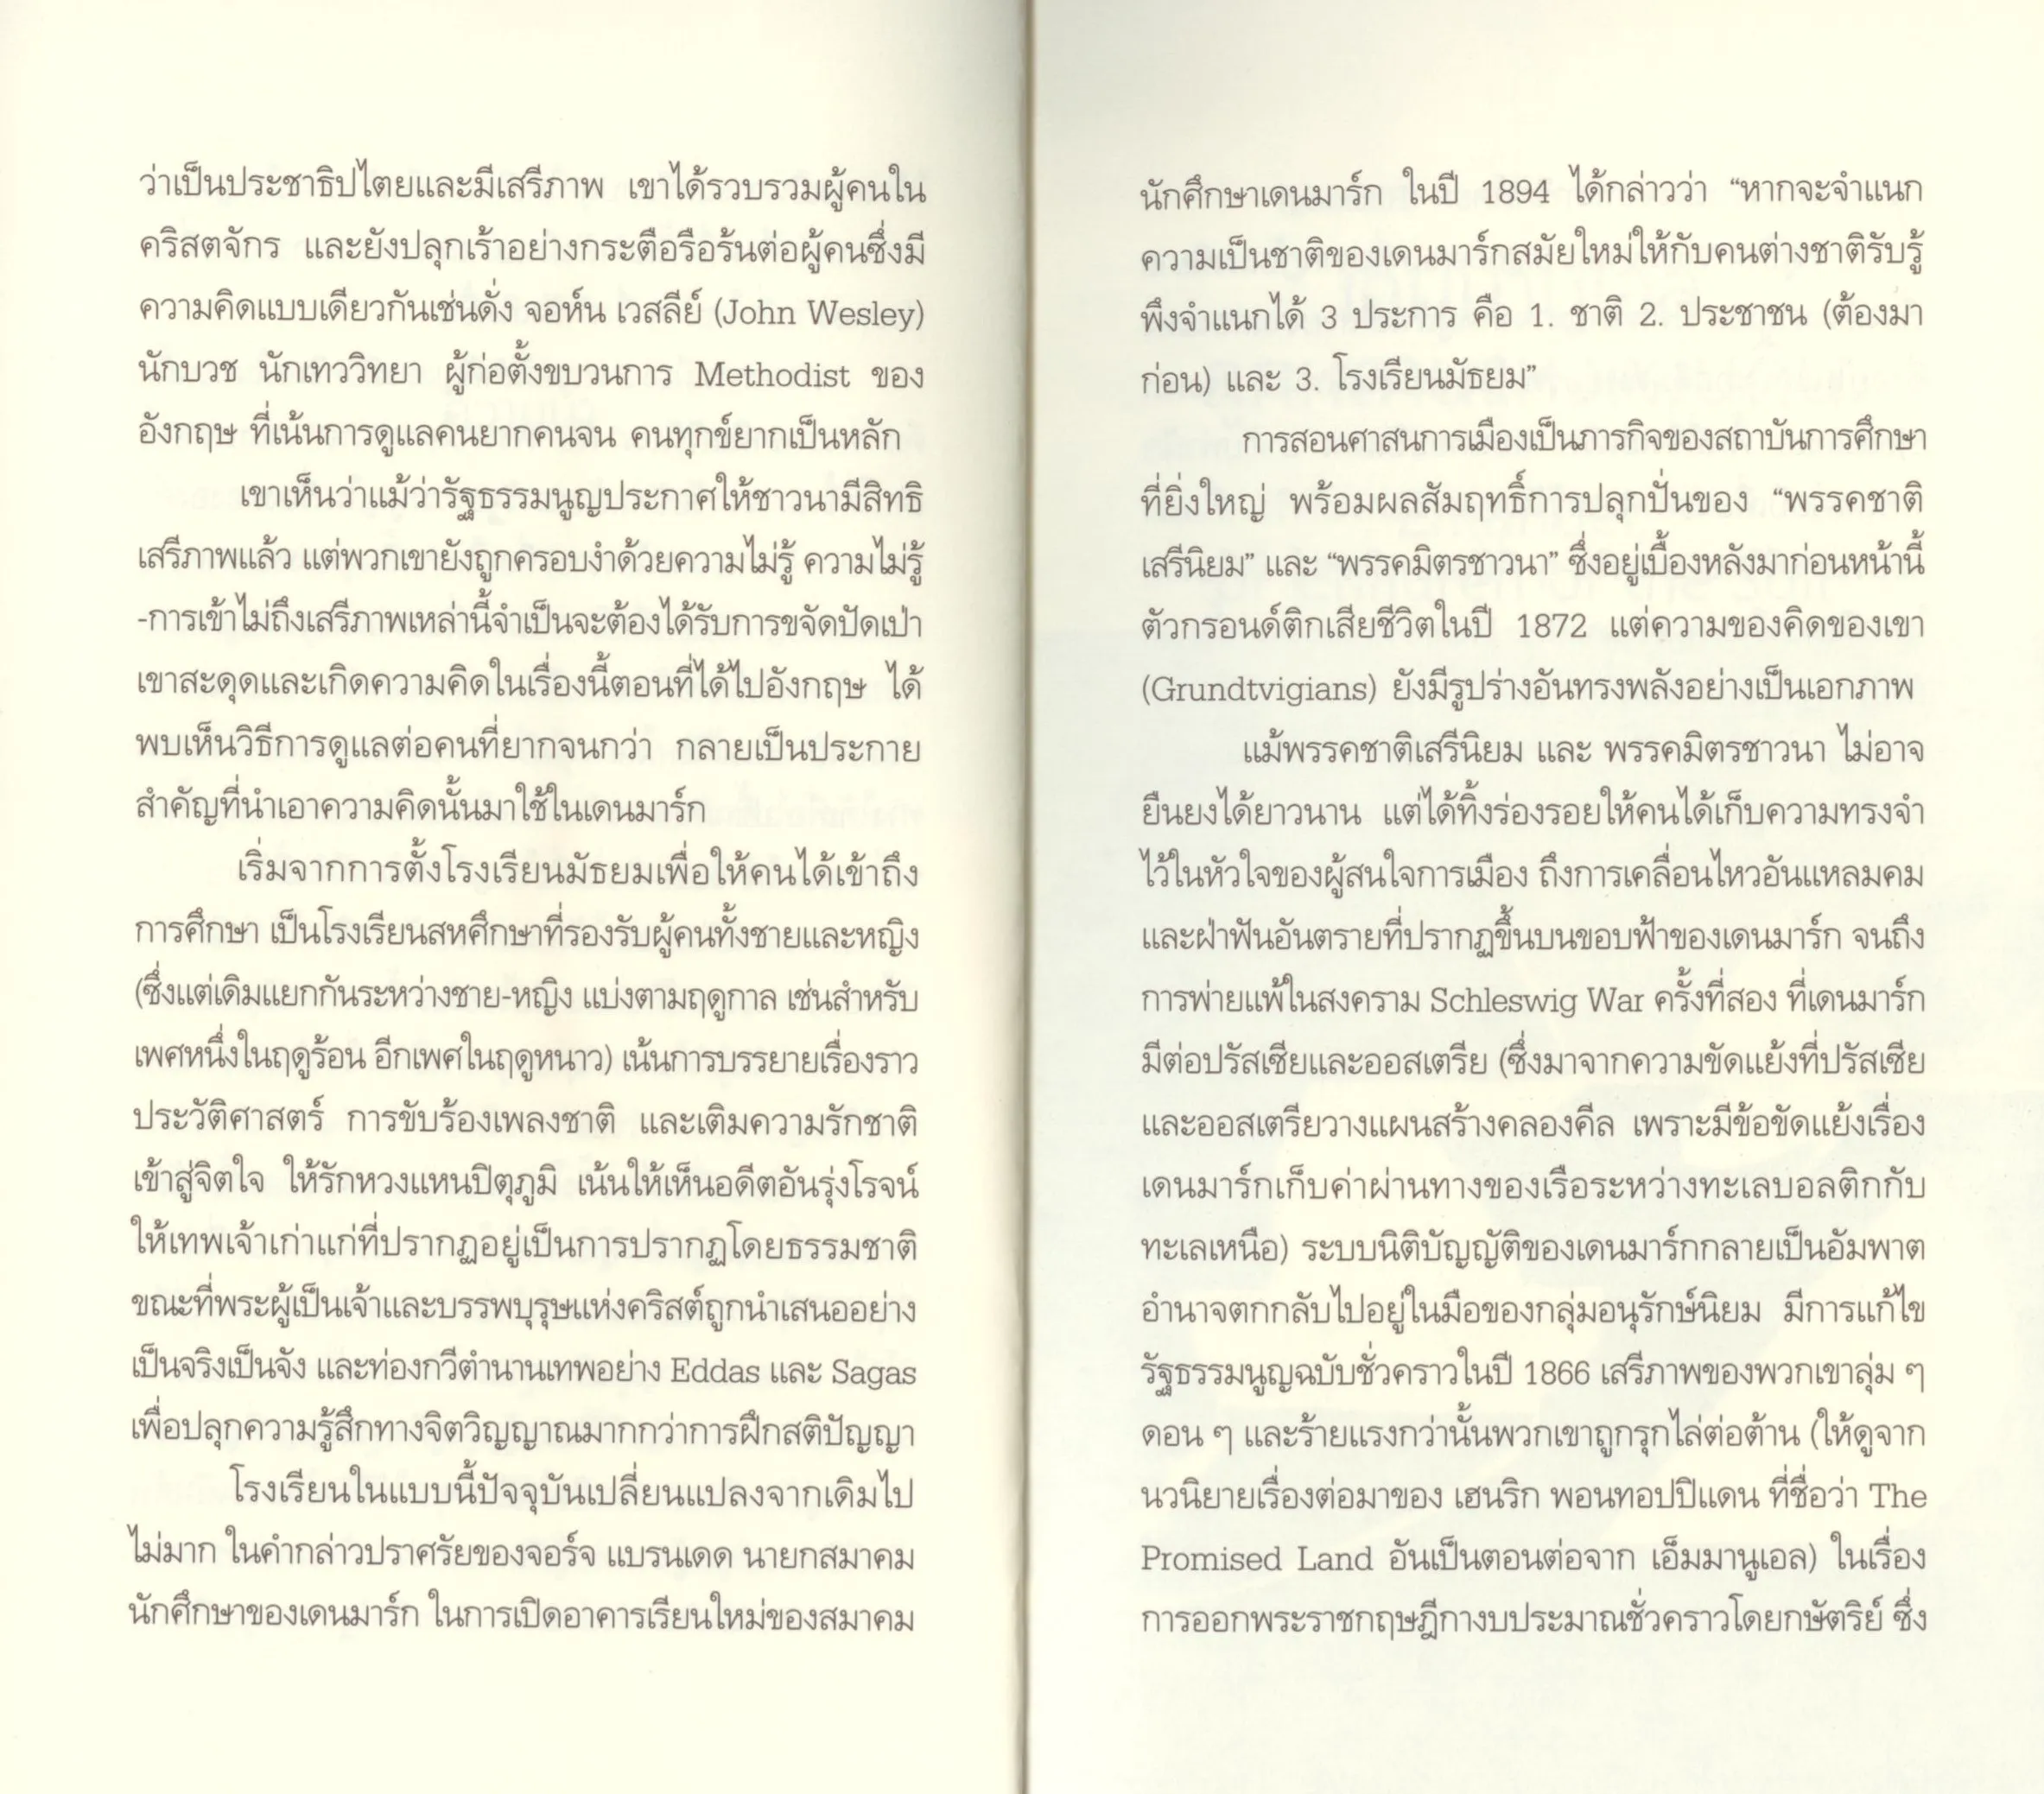 ว่าเป็นประชาธิปไตยและมีเสรีภาพ เขาได้รวบรวมผู้คนใน
คริสตจักร และยังปลุกเร้าอย่างกระตือรือร้นต่อผู้คนซึ่งมี
ความคิดแบบเดียวกันเช่นดั่ง จอห์น เวสลีย์ (John Wesley)
นักบวช นักเทววิทยา ผู้ก่อตั้งขบวนการ Methodist ของ
อังกฤษ ที่เน้นการดูแลคนยากคนจน คนทุกข์ยากเป็นหลัก
เขาเห็นว่าแม้ว่ารัฐธรรมนูญประกาศให้ชาวนามีสิทธิ
เสรีภาพแล้ว แต่พวกเขายังถูกครอบงำด้วยความไม่รู้ ความไม่รู้
-การเข้าไม่ถึงเสรีภาพเหล่านี้จำเป็นจะต้องได้รับการขจัดปัดเป่า
เขาสะดุดและเกิดความคิดในเรื่องนี้ตอนที่ได้ไปอังกฤษ ได้
พบเห็นวิธีการดูแลต่อคนที่ยากจนกว่า กลายเป็นประกาย
สำคัญที่นำเอาความคิดนั้นมาใช้ในเดนมาร์ก
เริ่มจากการตั้งโรงเรียนมัธยมเพื่อให้คนได้เข้าถึง
การศึกษา เป็นโรงเรียนสหศึกษาที่รองรับผู้คนทั้งชายและหญิง
(ซึ่งแต่เดิมแยกกันระหว่างชาย-หญิง แบ่งตามฤดูกาล เช่นสำหรับ
เพศหนึ่งในฤดูร้อน อีกเพศในฤดูหนาว) เน้นการบรรยายเรื่องราว
ประวัติศาสตร์ การขับร้องเพลงชาติ และเติมความรักชาติ
เข้าสู่จิตใจ ให้รักหวงแหนปิตุภูมิ เน้นให้เห็นอดีตอันรุ่งโรจน์
ให้เทพเจ้าเก่าแก่ที่ปรากฏอยู่เป็นการปรากฏโดยธรรมชาติ
ขณะที่พระผู้เป็นเจ้าและบรรพบุรุษแห่งคริสต์ถูกนำเสนออย่าง
เป็นจริงเป็นจัง และท่องกวีตำนานเทพอย่าง Eddas และ Sagas
เพื่อปลุกความรู้สึกทางจิตวิญญาณมากกว่าการฝึกสติปัญญา
โรงเรียนในแบบนี้ปัจจุบันเปลี่ยนแปลงจากเดิมไป
ไม่มาก ในคำกล่าวปราศรัยของจอร์จ แบรนเดด นายกสมาคม
นักศึกษาของเดนมาร์ก ในการเปิดอาคารเรียนใหม่ของสมาคม
นักศึกษาเดนมาร์ก ในปี 1894 ได้กล่าวว่า “หากจะจำแนก
ความเป็นชาติของเดนมาร์กสมัยใหม่ให้กับคนต่างชาติรับรู้
พึงจำแนกได้ 3 ประการ คือ 1. ชาติ 2. ประชาชน (ต้องมา
ก่อน) และ 3. โรงเรียนมัธยม”
การสอนศาสนการเมืองเป็นภารกิจของสถาบันการศึกษา
ที่ยิ่งใหญ่ พร้อมผลสัมฤทธิ์การปลุกปั่นของ “พรรคชาติ
เสรีนิยม” และ “พรรคมิตรชาวนา” ซึ่งอยู่เบื้องหลังมาก่อนหน้านี้
ตัวกรอนด์ติกเสียชีวิตในปี 1872 แต่ความของคิดของเขา
(Grundtvigians) ยังมีรูปร่างอันทรงพลังอย่างเป็นเอกภาพ
แม้พรรคชาติเสรีนิยม และ พรรคมิตรชาวนา ไม่อาจ
ยืนยงได้ยาวนาน แต่ได้ทิ้งร่องรอยให้คนได้เก็บความทรงจำ
ไว้ในหัวใจของผู้สนใจการเมือง ถึงการเคลื่อนไหวอันแหลมคม
และฝ่าฟันอันตรายที่ปรากฏขึ้นบนขอบฟ้าของเดนมาร์ก จนถึง
การพ่ายแพ้ในสงคราม Schleswig War ครั้งที่สอง ที่เดนมาร์ก
มีต่อปรัสเซียและออสเตรีย (ซึ่งมาจากความขัดแย้งที่ปรัสเซีย
และออสเตรียวางแผนสร้างคลองคีล เพราะมีข้อขัดแย้งเรื่อง
เดนมาร์กเก็บค่าผ่านทางของเรือระหว่างทะเลบอลติกกับ
ทะเลเหนือ) ระบบนิติบัญญัติของเดนมาร์กกลายเป็นอัมพาต
อำนาจตกกลับไปอยู่ในมือของกลุ่มอนุรักษ์นิยม มีการแก้ไข
รัฐธรรมนูญฉบับชั่วคราวในปี 1866 เสรีภาพของพวกเขาลุ่ม ๆ
ดอน ๆ และร้ายแรงกว่านั้นพวกเขาถูกรุกไล่ต่อต้าน (ให้ดูจาก
นวนิยายเรื่องต่อมาของ เฮนริก พอนทอปปิแดน ที่ชื่อว่า The
Promised Land อันเป็นตอนต่อจาก เอ็มมานูเอล) ในเรื่อง
การออกพระราชกฤษฎีกางบประมาณชั่วคราวโดยกษัตริย์ ซึ่ง